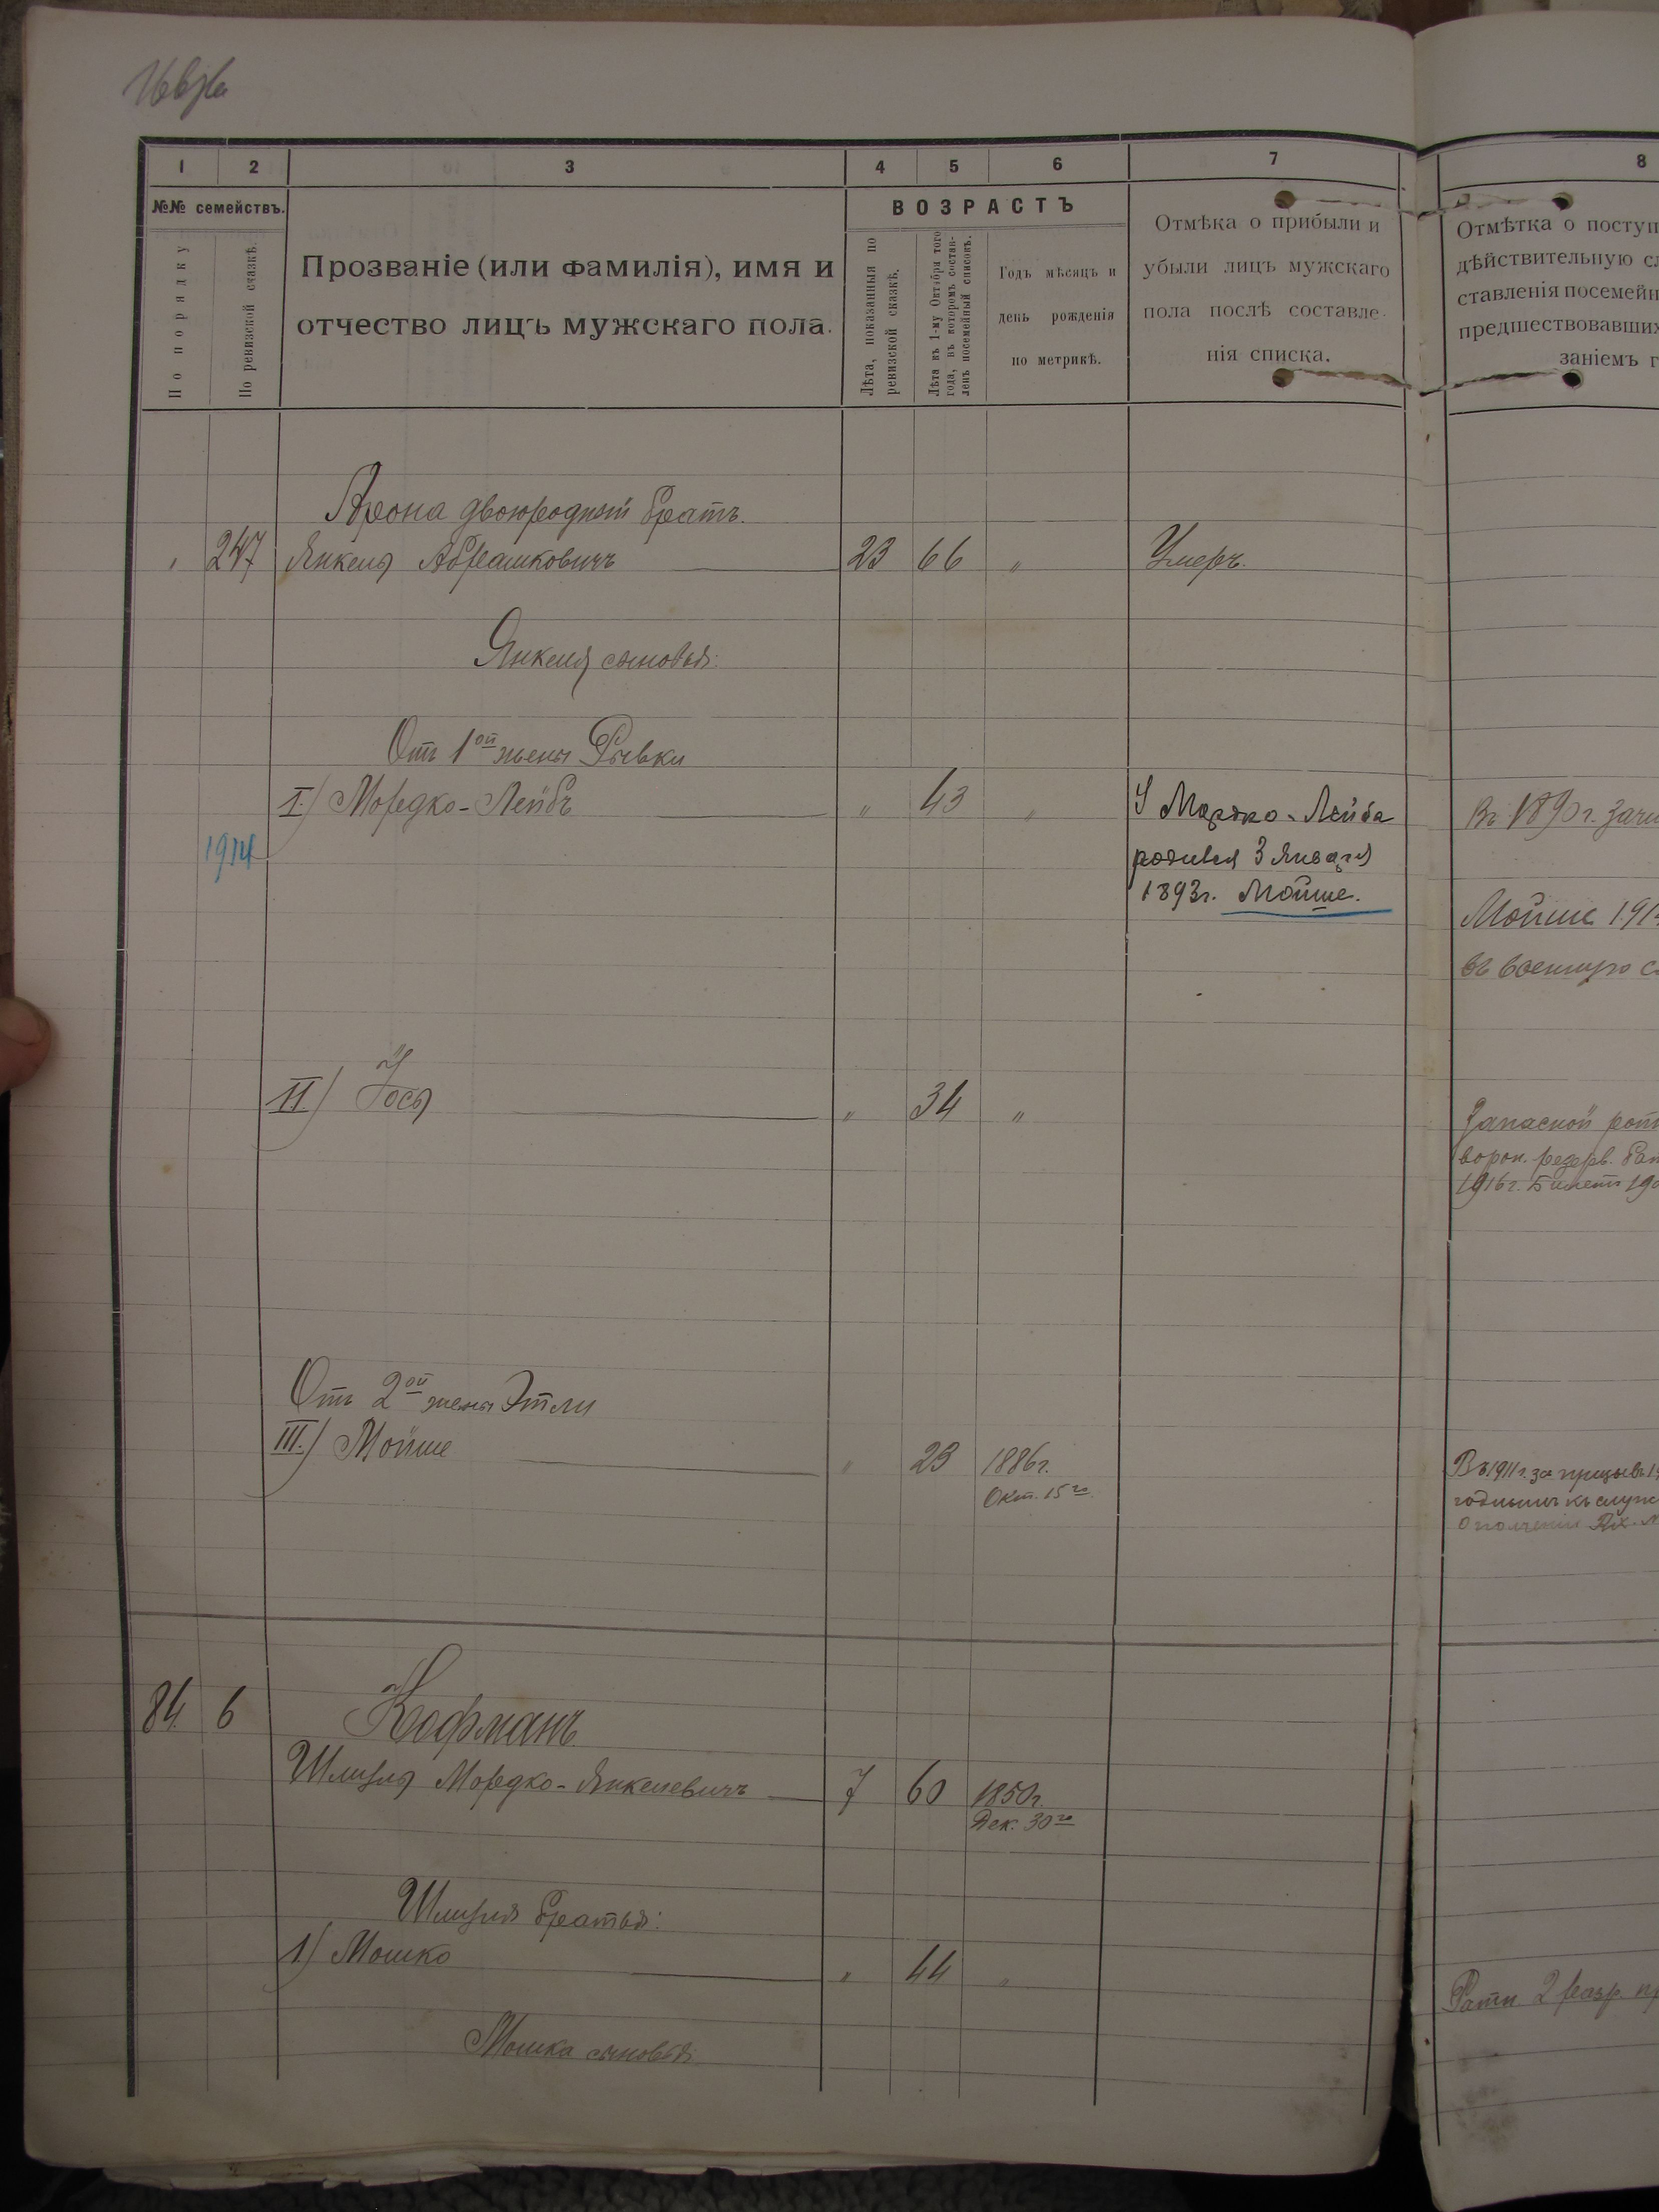 1 2 3 4 5 6 7 8
№№ семействъ.
По порядку
По ревизской сказкѣ.
Прозваніе (или фамилія), имя и
отчество лицъ мужскаго пола.
ВОЗРАСТЪ
Лѣта, показанныя по
ревизской сказкѣ.
Лѣта къ 1-му Октября того
года, въ которомъ состав-
ленъ посемейный списокъ.
Годъ мѣсяцъ и
день рожденія
по метрикѣ.
Отмѣка о прибыли и
убыли лицъ мужскаго
пола послѣ составле-
нія списка.
Отмѣтка о поступ
дѣйствительную сл
ставленія посемейн
предшествовавших
заніемъ г
Арона двоюродный братъ.
" 247 Янкель Абрамковичъ 23 66 " Умеръ.
Янкеля сыновья:
Отъ 1ой жены Рывки
I.) Мордко-Лейбъ " 43 "
1914
У Мордко-Лейба
родился 3 Января
1893г. Мойше.
Въ 1890г. зачи
Мойше 191
въ военную с
II.) Іось " 34 "
Запасной рот
ворон. резерв. бат
1916г. Билетъ 190
Отъ 2ой жены Этли
III.) Мойше " 23 1886г.
Окт. 15го.
Въ 1911г. за призывъ 1
годнымъ къ служ
ополченіи
84 6 Кофманъ
Шмуль Мордко-Янкелевичъ 7 60 1850г.
Дек. 30го
Шмуля братья:
1.) Мошко " 44 "
Ратн 2 разр. пр
Мошка сыновья: